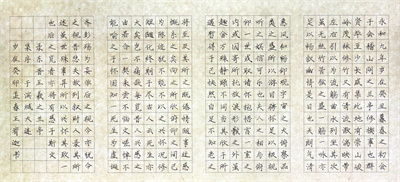 永和九年歲在癸丑暮春之初會
于會稽山陰之蘭亭修禊事也群
賢畢至少長咸集此地有崇山峻
嶺茂林修竹又有清流激湍映帶
左右引以為流觴曲水列坐其次
雖無絲竹管弦之盛一觴一詠亦
足以暢敘幽情是日也天朗氣清
惠風和暢仰觀宇宙之大俯察品
類之盛所以遊目騁懷足以極視
聽之娛信可樂也夫人之相與俯
仰一世或取諸懷抱悟言一室之
內或因寄所託放浪形骸之外雖
趣舍萬殊靜躁不同當其欣於所
遇暫得於己快然自足不知老之
將至及其所之既倦情隨事遷感
慨係之矣向之所欣俯仰之間已
為陳跡猶不能不以之興懷況修
短隨化終期於盡古人云死生亦
大矣豈不痛哉每覽昔人興感之
由若合一契未嘗不臨文嗟悼不
能喻之於懷固知一死生為虛誕
齊彭殤為妄作後之視今亦猶今
之視昔悲夫故列敘時人錄其所
述雖世殊事異所以興懷其致一
也後之覽者亦將有感於斯文
東晉王羲之蘭亭
集序
歲在癸巳春